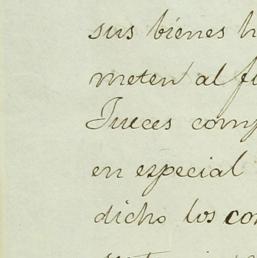 sus bienes h
meten al fu
Jueces comp
en especial
dicho los con